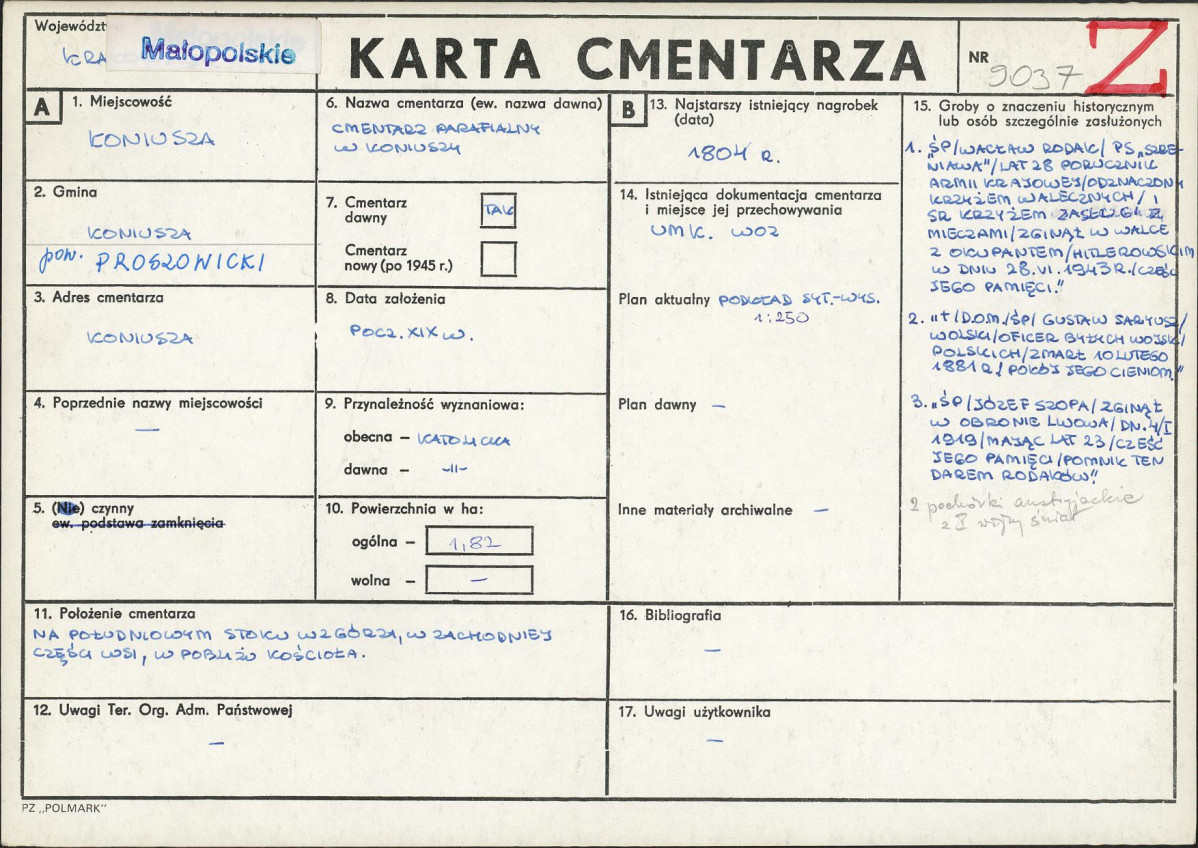 Województ
KRA
Małopolskie
KARTA CMENTARZA
NR 9037
Z
A
1. Miejscowość
KONIUSZA
2. Gmina
KONIUSZA
pow. PROSZOWICKI
3. Adres cmentarza
KONIUSZA
4. Poprzednie nazwy miejscowości
—
5. (Nie) czynny
ew. podstawa zamknięcia
6. Nazwa cmentarza (ew. nazwa dawna)
CMENTARZ PARAFIALNY
W KONIUSZY
7. Cmentarz
dawny TAK
Cmentarz
nowy (po 1945 r.)
8. Data założenia
POCZ. XIX W.
9. Przynależność wyznaniowa:
obecna – KATOLICKA
dawna – -II-
10. Powierzchnia w ha:
ogólna – 1,82
wolna – —
11. Położenie cmentarza
NA POŁUDNIOWYM STOKU WZGÓRZA, W ZACHODNIEJ
CZĘŚCI WSI, W POBLIŻU KOŚCIOŁA.
12. Uwagi Ter. Org. Adm. Państwowej
—
B
13. Najstarszy istniejący nagrobek
(data)
1804 R.
14. Istniejąca dokumentacja cmentarza
i miejsce jej przechowywania
UMK. WOZ
Plan aktualny PODKŁAD SYT.-WYS.
1:250
Plan dawny –
Inne materiały archiwalne –
15. Groby o znaczeniu historycznym
lub osób szczególnie zasłużonych
1. „ŚP/WACŁAW RODAK/ PS„SZRE-
NIAWA"/LAT 28 PORUCZNIK
ARMII KRAJOWEJ/ODZNACZONY
KRZYŻEM WALECZNYCH/ I
SR. KRZYŻEM ZASŁUG Z
MIECZAMI/ZGINĄŁ W WALCE
Z OKUPANTEM/HITLEROWSKIM
W DNIU 28.VI.1943R./CZEŚĆ
JEGO PAMIĘCI."
2. "†/D.O.M./ŚP/ GUSTAW SARYUSZ/
WOLSKI/OFICER BYŁYCH WOJSK/
POLSKICH/ZMARŁ 10 LUTEGO
1881 R./ POKÓJ JEGO CIENIOM."
3. „ŚP/JÓZEF SZOPA/ZGINĄŁ
W OBRONIE LWOWA/DN.4/I
1919/MAJĄC LAT 23/CZEŚĆ
JEGO PAMIĘCI/POMNIK TEN
DAREM RODAKÓW."
2 pochówki austryjackie
z I wojny świat
16. Bibliografia
—
17. Uwagi użytkownika
—
PZ „POLMARK"